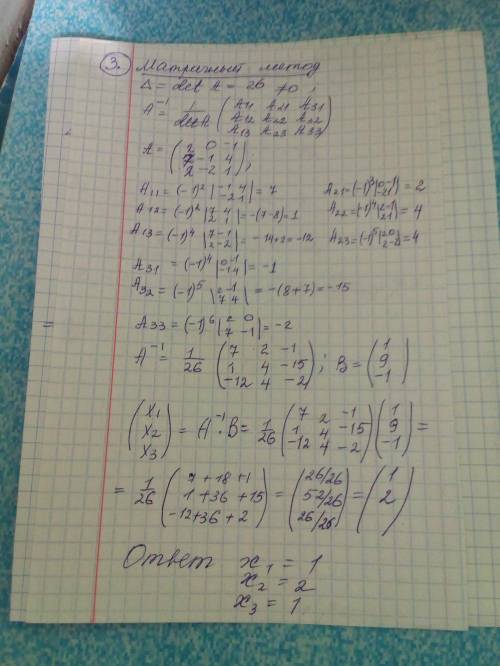 3. Матричный метод
Δ = det A = 26 ≠0;
A⁻¹ = 1/det A (A11 A21 A31
A12 A22 A32
A13 A23 A33)
A = (2 0 -1
7 -1 4
2 -2 1);
A11 = (-1)² |-1 4
-2 1| = 7
A21 = (-1)³ |0 -1
-2 1| = 2
A12 = (-1)² |7 4
2 1| = -(7-8) = 1
A22 = (-1)⁴ |2 -1
2 1| = 4
A13 = (-1)⁴ |7 -1
2 -2| = -14+2 = -12
A23 = (-1)⁵ |2 0
2 -2| = 4
A31 = (-1)⁴ |0 -1
-1 4| = -1
A32 = (-1)⁵ |2 -1
7 4| = -(8+7) = -15
=
A33 = (-1)⁶ |2 0
7 -1| = -2
A⁻¹ = 1/26 (7 2 -1
1 4 -15
-12 4 -2); B = (1
9
-1)
(X1
X2
X3) = A⁻¹·B = 1/26 (7 2 -1
1 4 -15
-12 4 -2) (1
9
-1) =
= 1/26 (7+18+1
1+36+15
-12+36+2) = (26/26
52/26
26/26) = (1
2)
Ответ x1 = 1
x2 = 2
x3 = 1